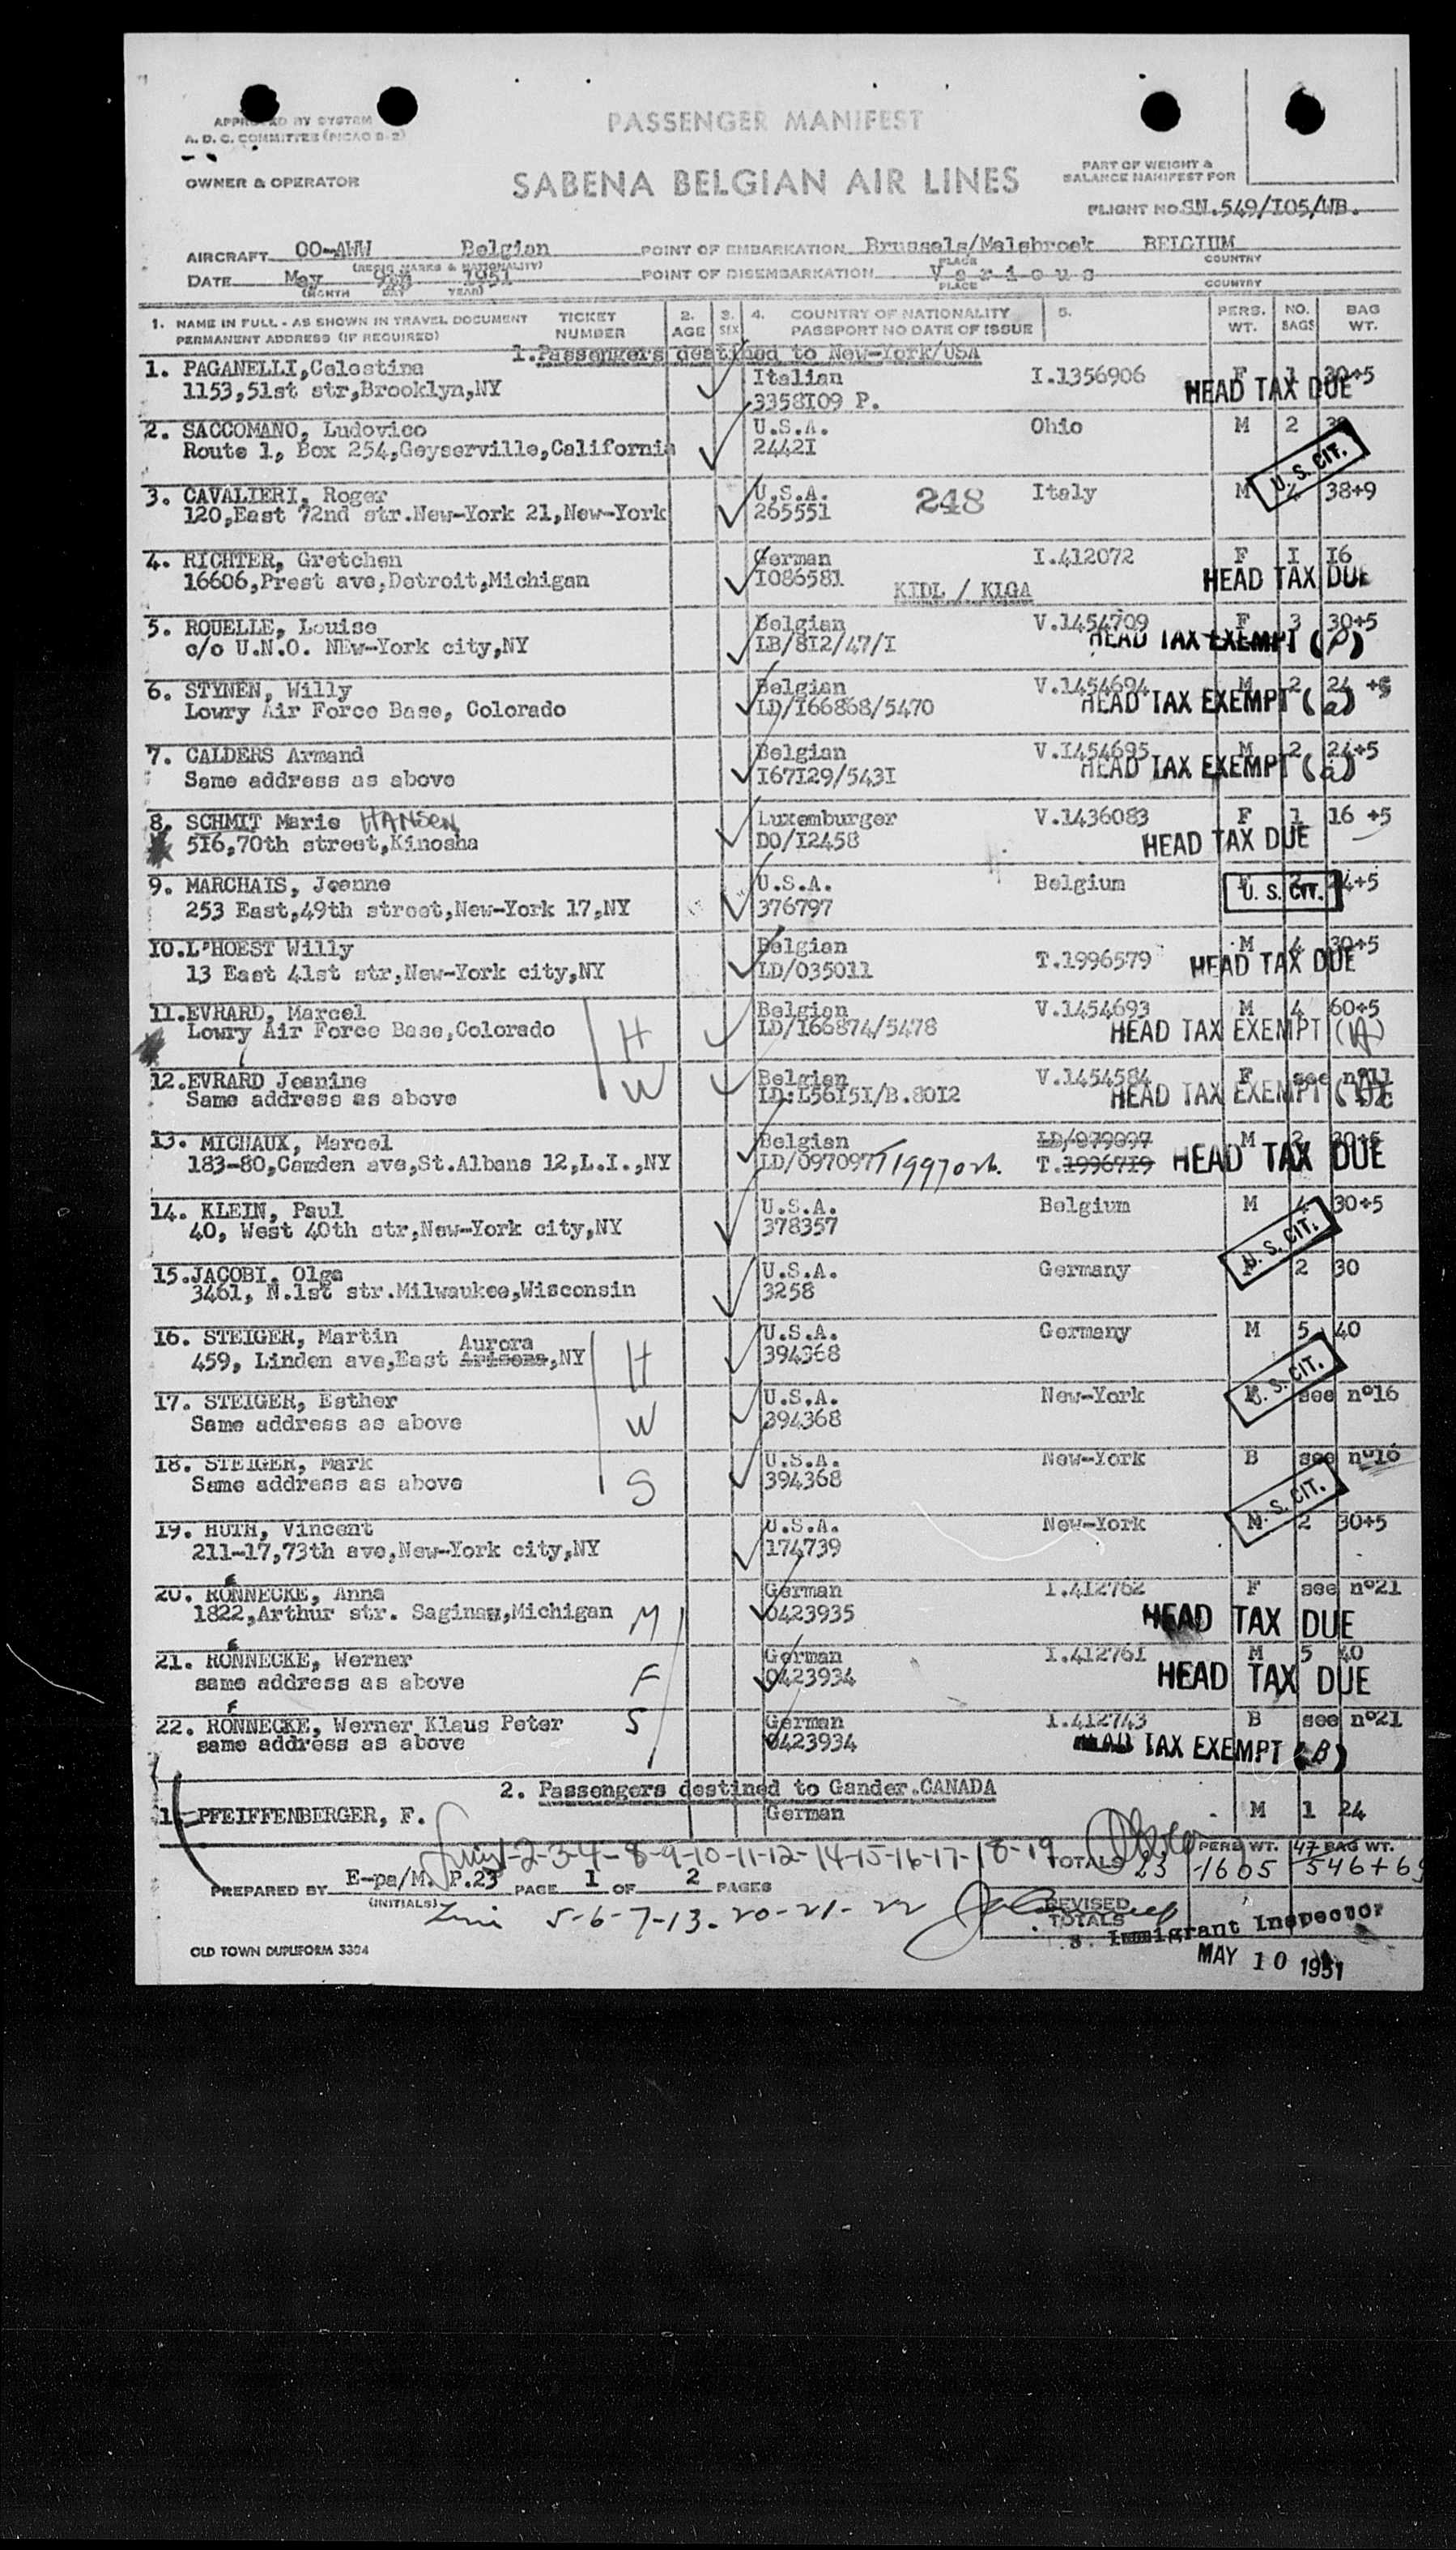 APPROVED BY SYSTEM
A. D. C. COMMITTEE (PICAO B-2)
PASSENGER MANIFEST
OWNER & OPERATOR
SABENA BELGIAN AIR LINES
PART OF WEIGHT &
BALANCE MANIFEST FOR
FLIGHT NO. SN.549/I05/WB.
AIRCRAFT OO-AWW Belgian POINT OF EMBARKATION Brussels/Melsbroek BELGIUM
(REGIS MARKS & NATIONALITY) PLACE COUNTRY
DATE May 9th 1951 POINT OF DISEMBARKATION Various
(MONTH DAY YEAR) PLACE COUNTRY
1. NAME IN FULL - AS SHOWN IN TRAVEL DOCUMENT TICKET 2. 3. 4. COUNTRY OF NATIONALITY 5. PERS. NO. BAG
PERMANENT ADDRESS (IF REQUIRED) NUMBER AGE SEX PASSPORT NO DATE OF ISSUE WT. BAGS WT.
1.Passengers destined to New-York/USA
1. PAGANELLI,Celestina Italian I.1356906 F 1 30+5
1153,51st str,Brooklyn,NY 3358I09 P. HEAD TAX DUE
2. SACCOMANO, Ludovico U.S.A. Ohio M 2
Route 1, Box 254,Geyserville,California 2442I U. S. CIT.
3. CAVALIERI, Roger U.S.A. 248 Italy M 38+9
120,East 72nd str.New-York 21,New-York 265551
4. RICHTER, Gretchen German I.412072 F I I6
16606,Prest ave,Detroit,Michigan I086581 KIDL / KIGA HEAD TAX DUE
5. ROUELLE, Louise Belgian V.1454709 F 3 30+5
c/o U.N.O. NEw-York city,NY LB/8I2/47/I HEAD TAX EXEMPT
6. STYNEN, Willy Belgian V.1454694 M 2 24 +5
Lowry Air Force Base, Colorado LD/I66868/5470 HEAD TAX EXEMPT (a)
7. CALDERS Armand Belgian V.I454695 M 2 24+5
Same address as above I67I29/543I HEAD TAX EXEMPT (a)
8. SCHMIT Marie HANSEN Luxemburger V.1436083 F 1 16 +5
5I6,70th street,Kinosha DO/I2458 HEAD TAX DUE
9. MARCHAIS, Jeanne U.S.A. Belgium +5
253 East,49th street,New-York 17,NY 376797 U. S. CIT.
I0.L'HOEST Willy Belgian T.1996579 M 4 30+5
13 East 41st str,New-York city,NY LD/035011 HEAD TAX DUE
11.EVRARD, Marcel Belgian V.1454693 M 4 60+5
Lowry Air Force Base,Colorado H LD/I66874/5478 HEAD TAX EXEMPT (A)
12.EVRARD Jeanine W Belgian V.1454584 F see nº11
Same address as above LD:L56I5I/B.80I2 HEAD TAX EXEMPT
13. MICHAUX, Marcel Belgian LD/079097 M 2 30+5
183-80,Camden ave,St.Albans 12,L.I.,NY LD/097097 T199702b. T.1996719 HEAD TAX DUE
14. KLEIN, Paul U.S.A. Belgium M 4 30+5
40, West 40th str,New-York city,NY 378357 U. S. CIT.
15.JACOBI, Olga U.S.A. Germany 2 30
3461, N.1st str.Milwaukee,Wisconsin 3258
16. STEIGER, Martin U.S.A. Germany M 5 40
Aurora
459, Linden ave,East Arizona,NY H 394368 U. S. CIT.
17. STEIGER, Esther U.S.A. New-York see nº16
Same address as above W 394368
18. STEIGER, Mark U.S.A. New-York B see nº16
Same address as above S 394368 U. S. CIT.
19. HUTH, Vincent U.S.A. New-York M 2 30+5
211-17,73th ave,New-York city,NY 174739
20. RONNECKE, Anna German I.412762 F see nº21
1822,Arthur str. Saginaw,Michigan M 0423935 HEAD TAX DUE
21. RONNECKE, Werner German I.412761 M 5 40
same address as above F 0423934 HEAD TAX DUE
22. RONNECKE, Werner Klaus Peter S German I.412743 B see nº21
same address as above 0423934 HEAD TAX EXEMPT (B)
2. Passengers destined to Gander.CANADA
1. PFEIFFENBERGER, F. German M 1 24
1-2-3-4-8-9-10-11-12-14-15-16-17-18-19 TOTALS 23 PERS WT. 1605 47 BAG WT. 546+69
PREPARED BY E-pa/M. P.23 PAGE 1 OF 2 PAGES
(INITIALS)
5-6-7-13-20-21-22 REVISED TOTALS
Immigrant Inspector
OLD TOWN DUPLIFORM 3304
MAY 10 1951